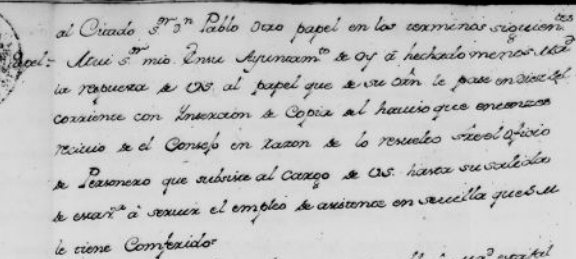 al Citado s.or d.n Pablo Otro papel en los terminos siguien.tes
Papel= Mui s.or mio. En su Ayuntam.to de oy à hechado menos Ma.d
la respuesta de VS. al papel que de su orn. le pase en diez del
corriente con Insercion de Copia del haviso que entonzes
recivio de el Consejo en razon de lo resuelto s.re el Oficio
de Personero que subsiste al Cargo de VS. hasta su salida
de esta à servir el empleo de asistente en Sevilla que S.M
le tiene Comferido